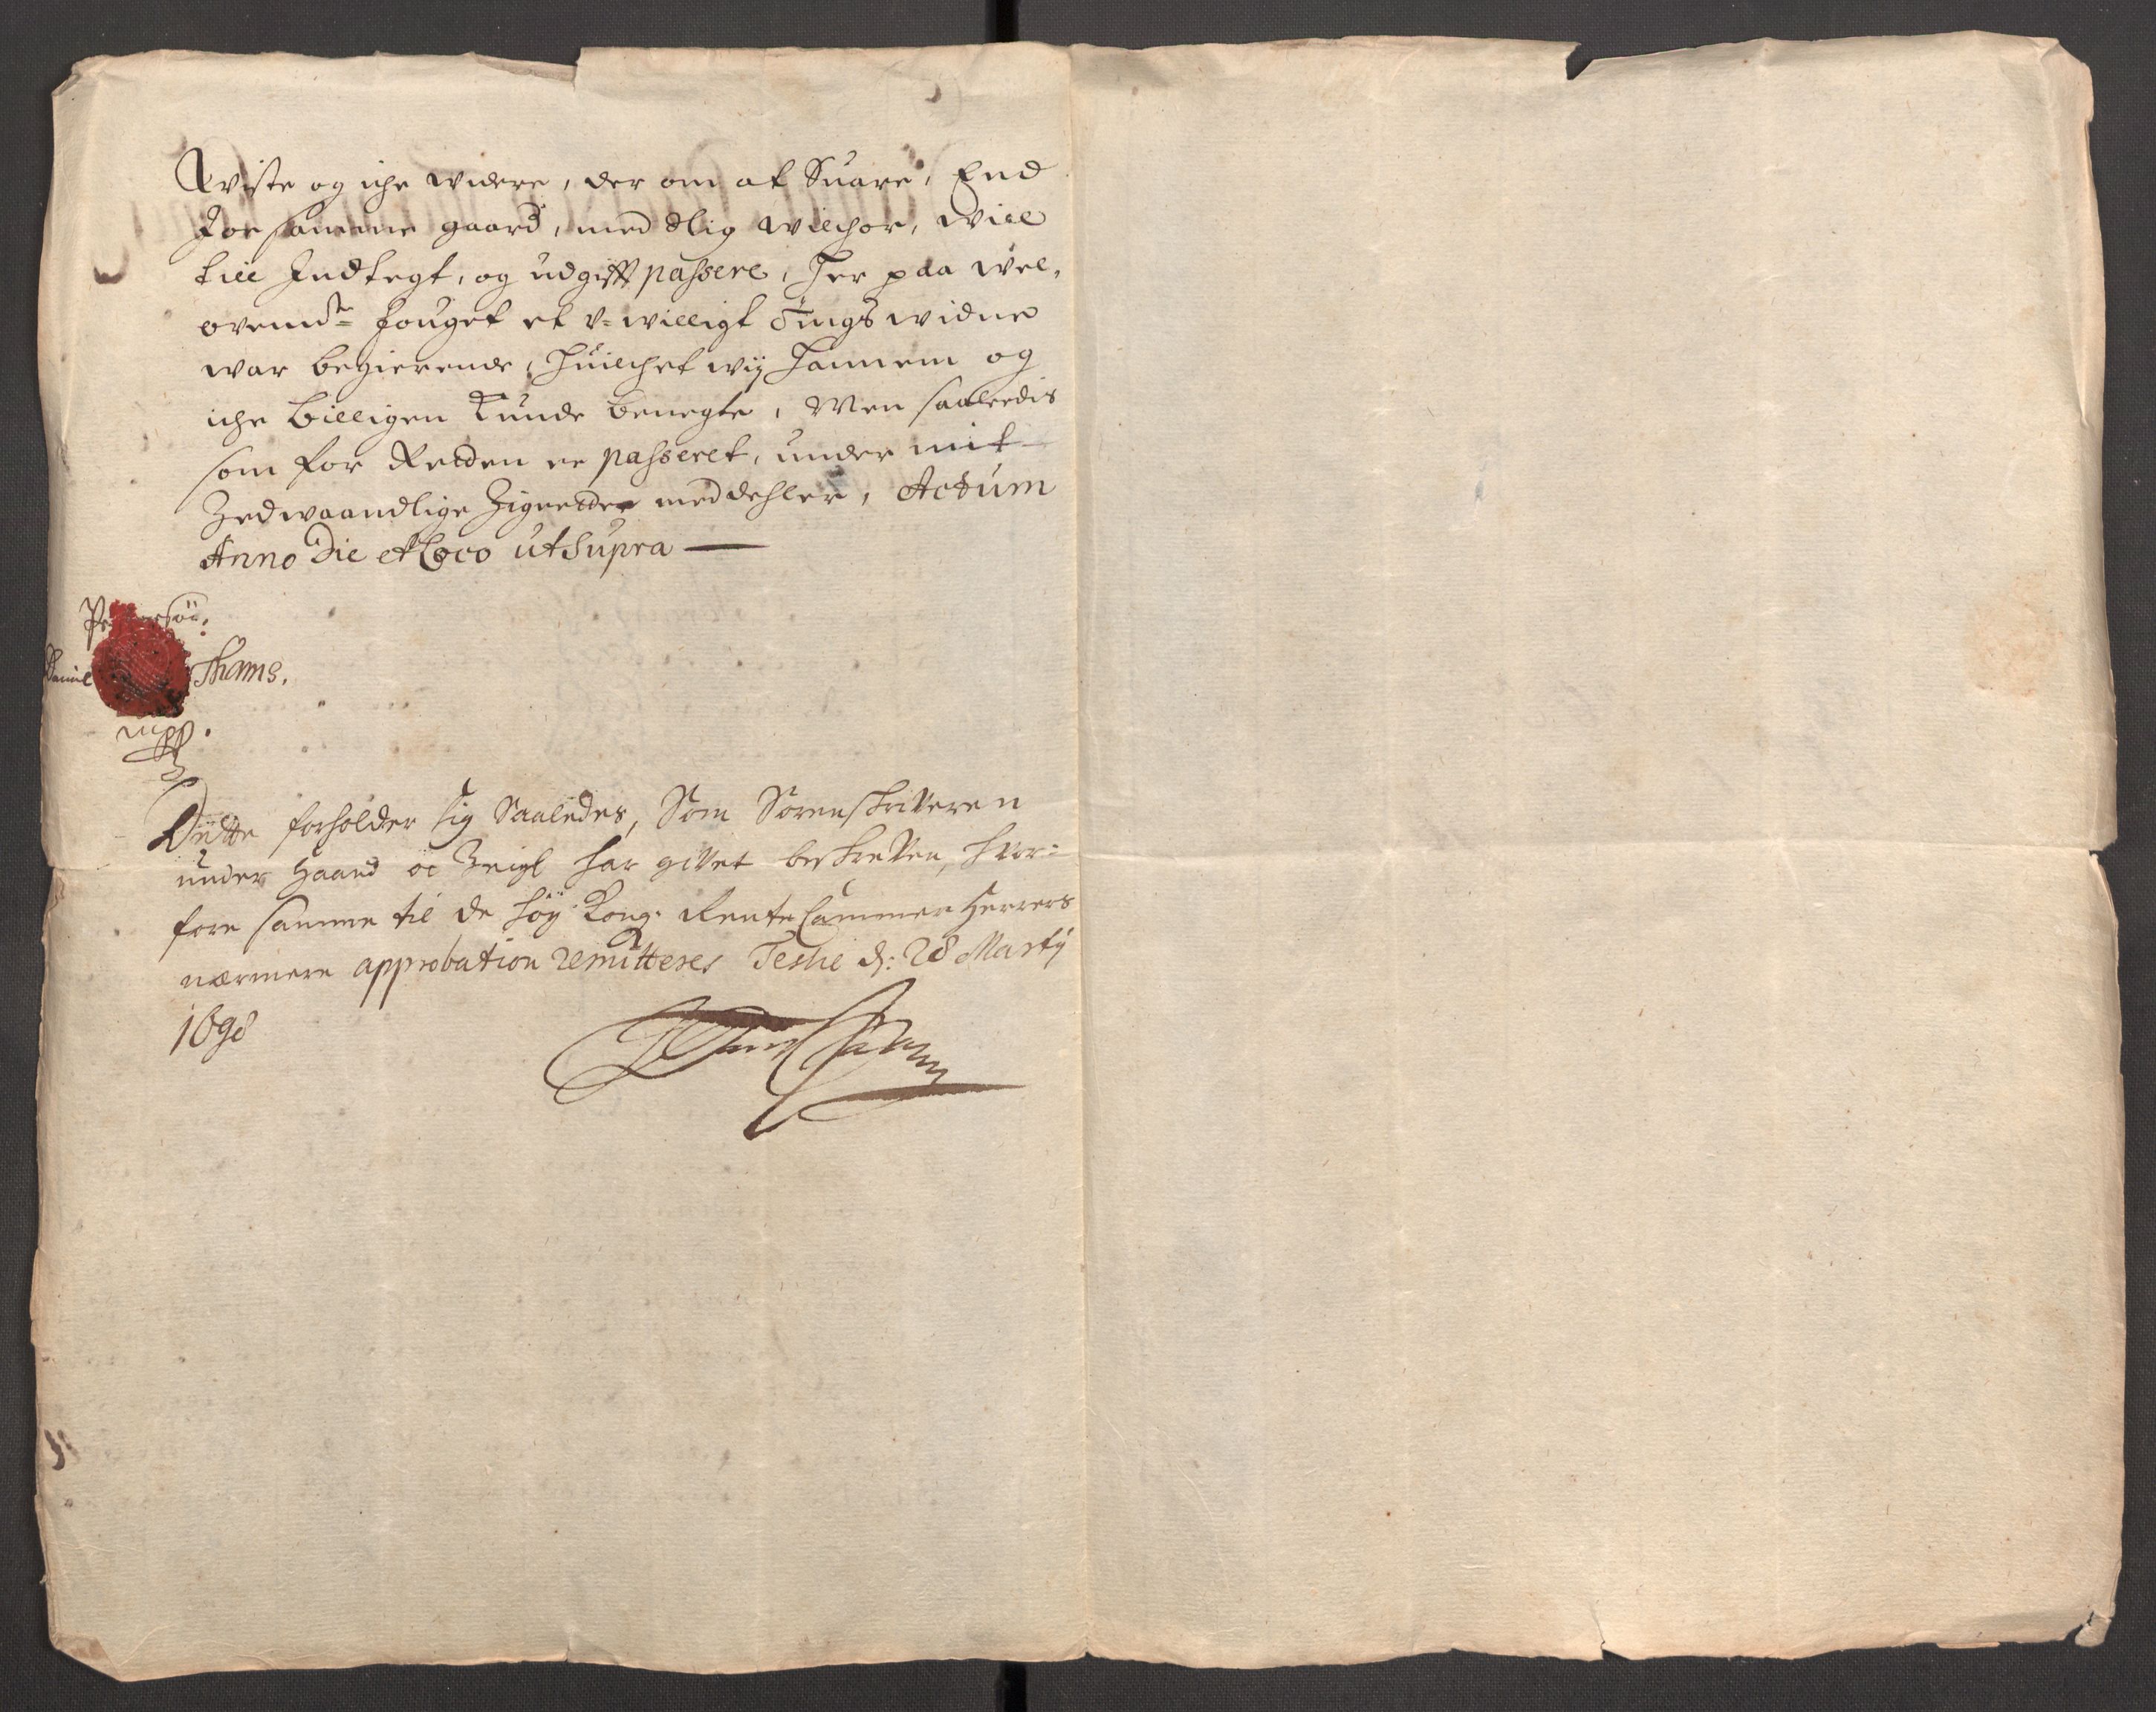 Wiste og iche widere, der om at Suare, End
For samme gaard, med slig wilchor, will
till Indtegt, og udgifft passere, Her paa wel,
ovemdte fouget et u-willigt Tings widne
war begierende, Huilchet wij Hannem og
iche billigen kunde benegte, Men saaledis
som for Retten er passeret, under mit
Zedwaandlige Zignette meddehler, Actum
Anno Die et Loco ut Supra
Pedersøn.
Thams.
mpp.
Dette forholder sig Saaledes, Som Sorenskriveren
under Haand oc Zeigl har givet beskreven, hvor-
fore samme til de høy Kong: Rente Cammer Herrers
nærmere approbation remitteres Teslie d: 28 Martij
1698